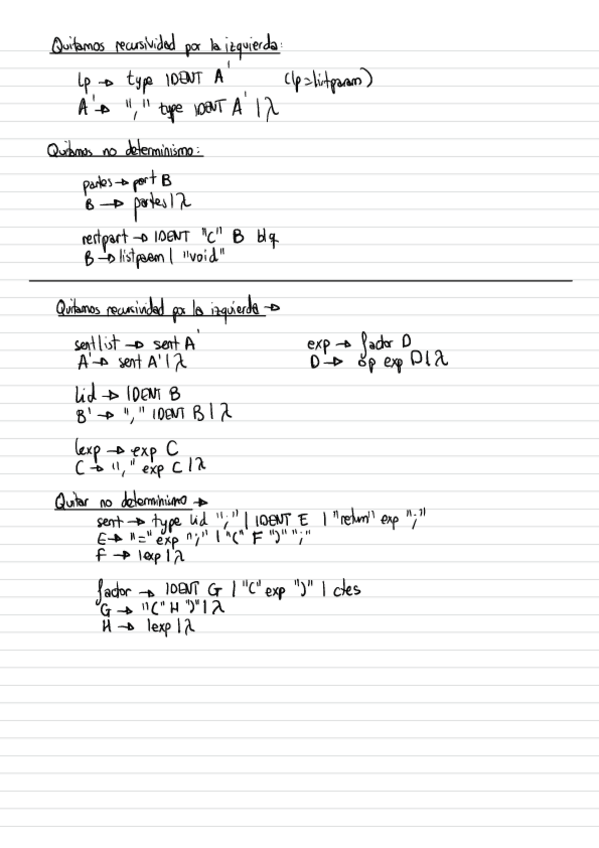 Quitamos recursividad por la izquierda:
lp → type IDENT A' (lp=listparam)
A' → "," type IDENT A' | λ
Quitamos no determinismo:
partes → part B
B → partes | λ
restpart → IDENT "(" B blq
B → listparam | "void"
Quitamos recursividad por la izquierda →
sentlist → sent A'
A' → sent A' | λ
exp → factor D
D → op exp D | λ
lid → IDENT B
B' → "," IDENT B | λ
lexp → exp C
C → "," exp C | λ
Quitar no determinismo →
sent → type lid ";" | IDENT E | "return" exp ";"
E → "=" exp ";" | "(" F ")" ";"
F → lexp | λ
factor → IDENT G | "(" exp ")" | ctes
G → "(" H ")" | λ
H → lexp | λ